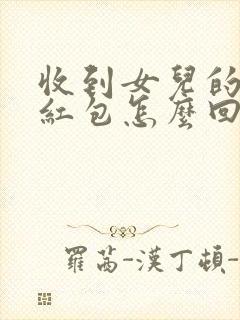 收到女兒的
紅包怎麼回
羅茜-漢丁頓-